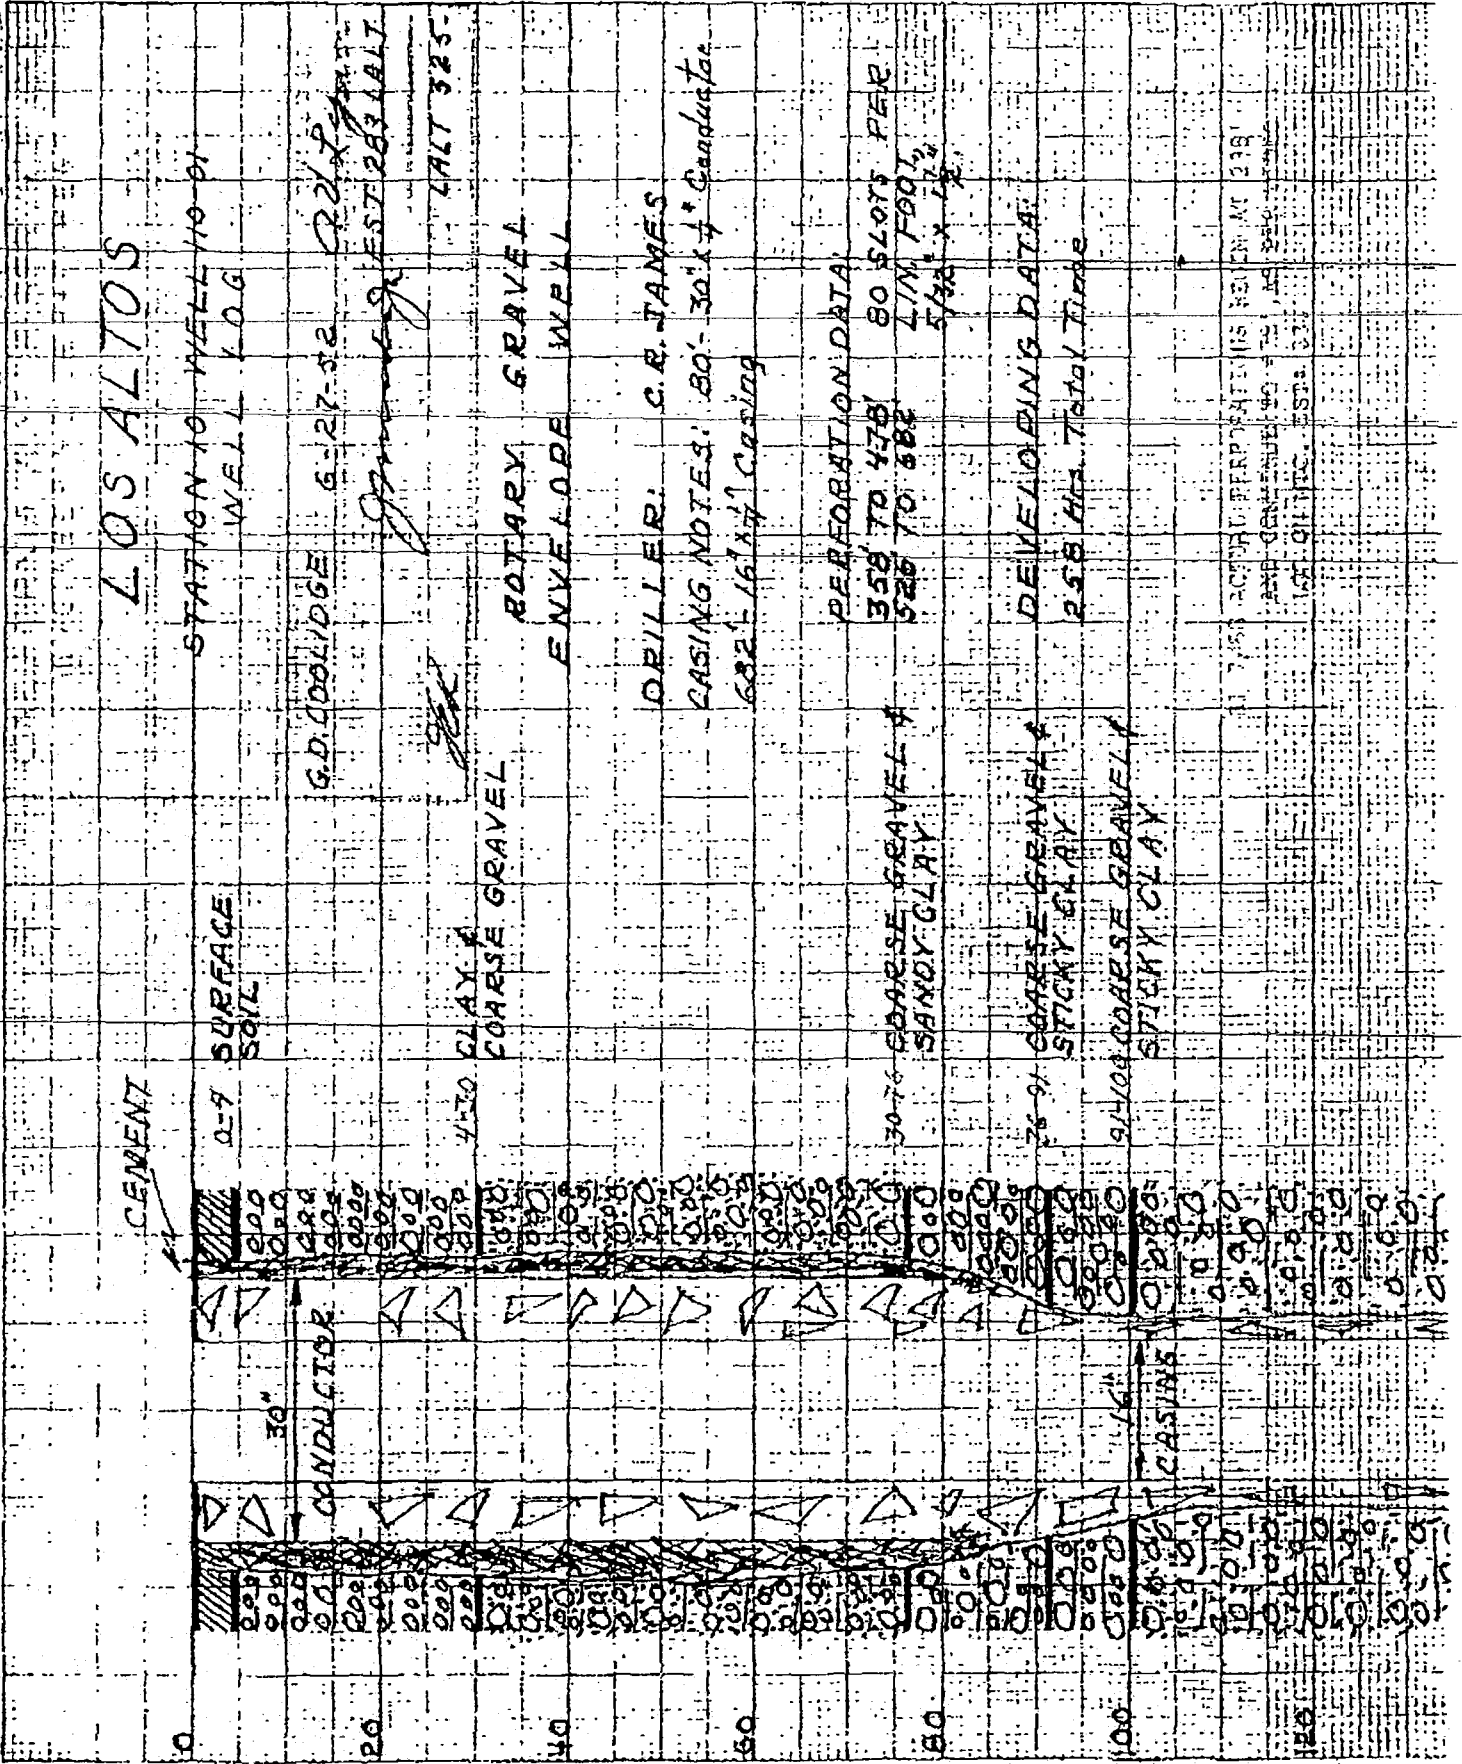 LOS ALTOS
STATION 10 WELL 110-01
WELL LOG
G.D. COOLIDGE 6-27-52
EST 283 LALT
LALT 325-
ROTARY GRAVEL
ENVELOPE WELL
DRILLER: C.R. JAMES
CASING NOTES: 80'- 30" x 1/4" Conductor
682'- 16" x 1/4" Casing
PERFORATION DATA:
358' TO 478' 80 SLOTS PER
526' TO 682' LIN. FOOT,
5/32" x 1 1/2"
DEVELOPING DATA:
258 Hrs. Total Time
CEMENT
0-4 SURFACE
SOIL
4-30 CLAY &
COARSE GRAVEL
30-76 COARSE GRAVEL &
SANDY CLAY
76-91 COARSE GRAVEL &
STICKY CLAY
91-100 COARSE GRAVEL &
STICKY CLAY
30"
CONDUCTOR
16"
CASING
0
20
40
60
80
100
120